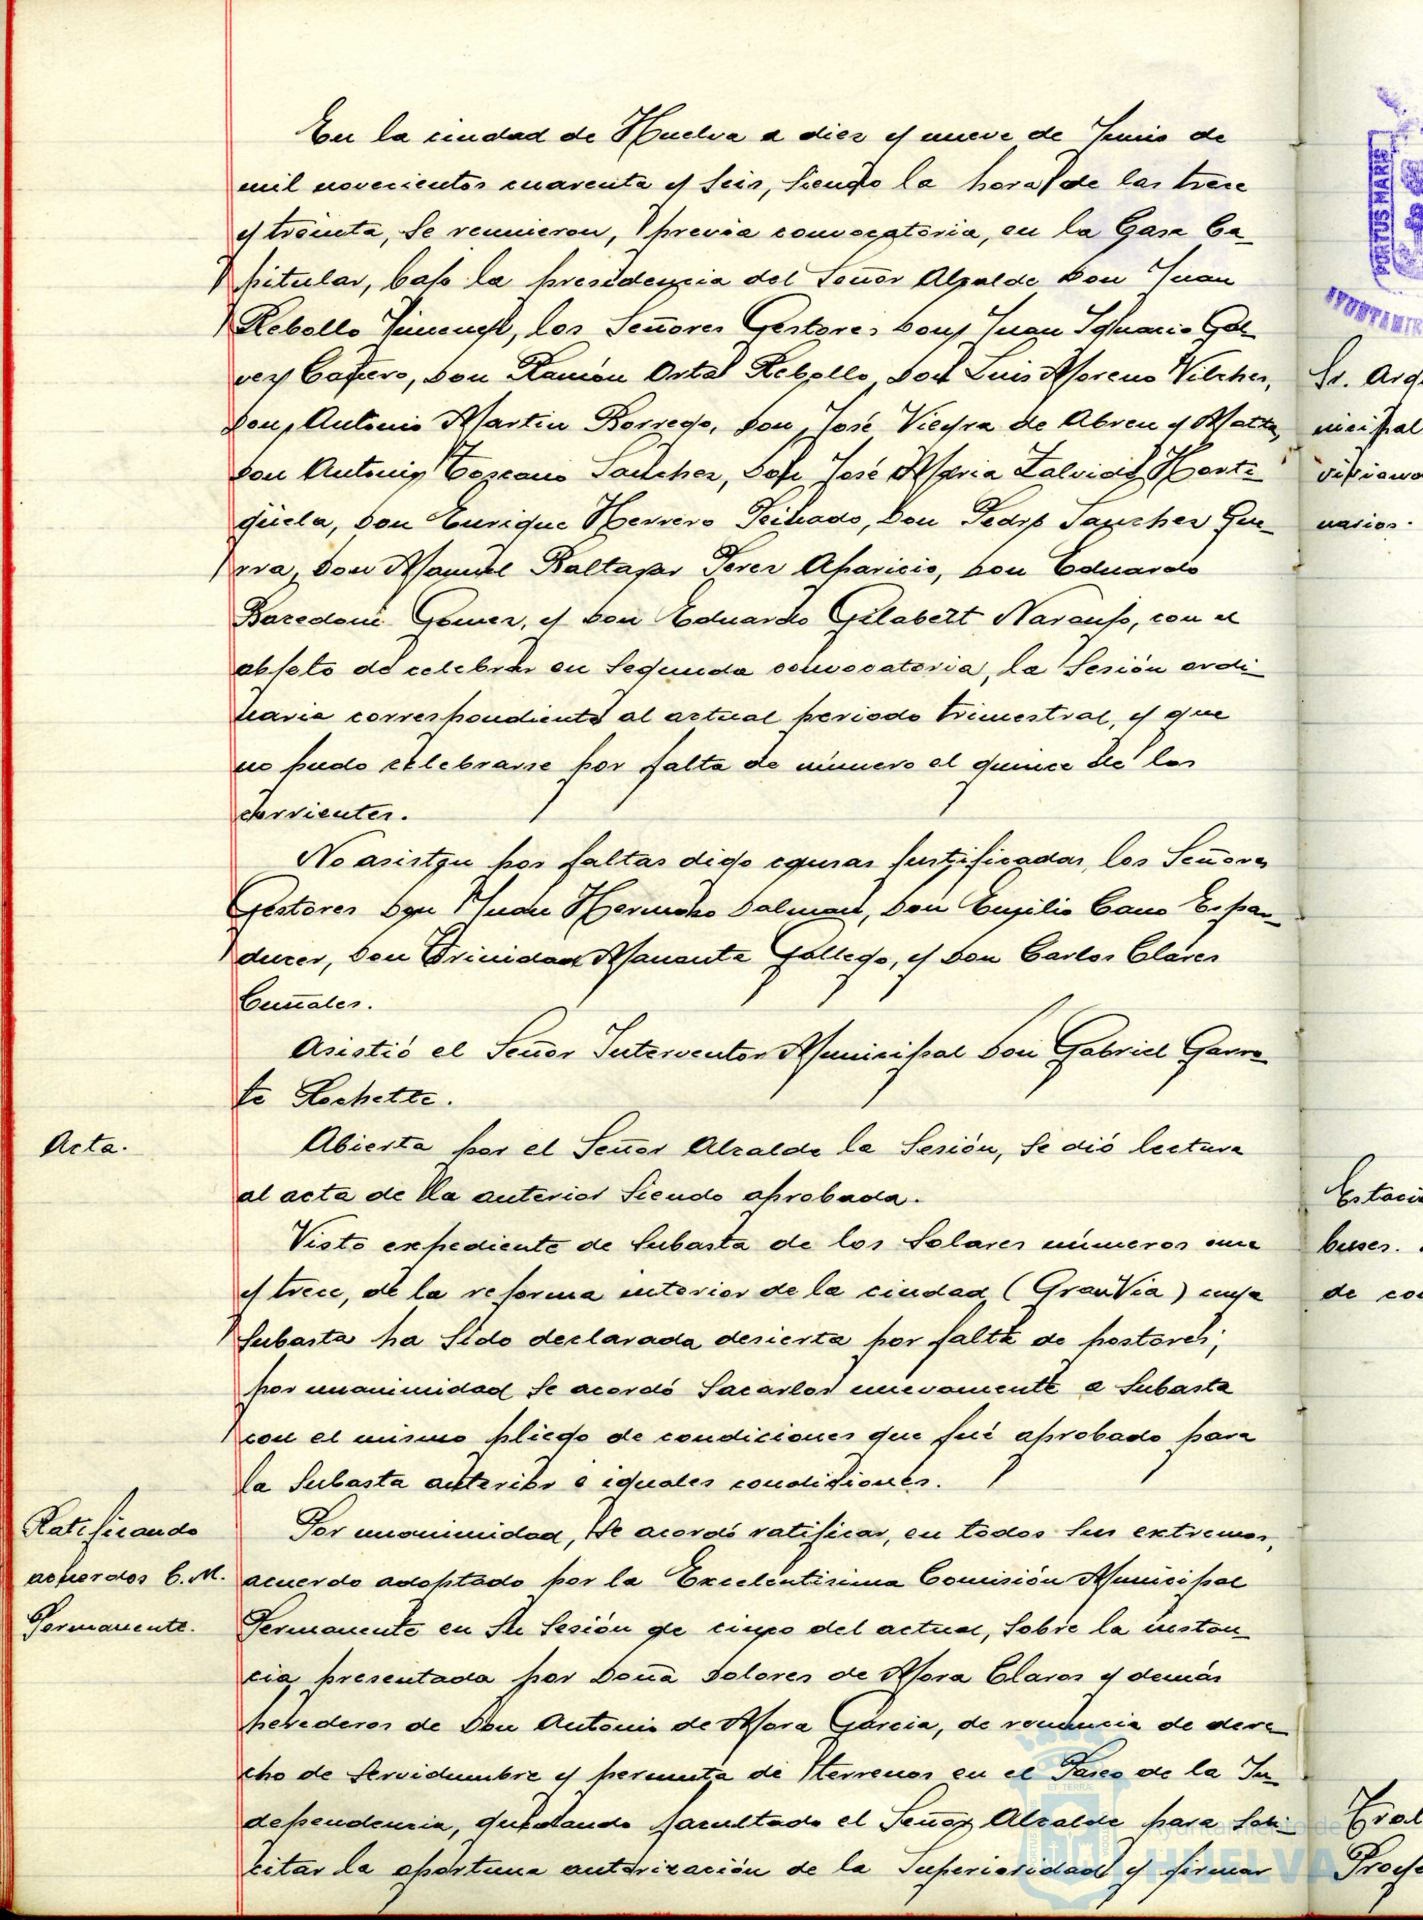 En la ciudad de Huelva a diez y nueve de Junio de
mil novecientos cuarenta y seis, siendo la hora de las trece
y treinta, se reunieron, previa convocatoria, en la Casa Ca-
pitular, bajo la presidencia del Señor Alcalde Don Juan
Rebollo Jimenez, los Señores Gestores Don Juan Ignacio Gal-
vez Cañero, Don Ramón Ortal Rebollo, Don Luis Moreno Vilches,
Don Antonio Martin Borrego, Don José Vieyra de Abreu y Matta,
Don Antonio Toscano Sanchez, Don José Maria Zalvide Horti-
güela, Don Enrique Herrero Peinado, Don Pedro Sanchez Gue-
rra, Don Manuel Baltasar Perez Aparicio, Don Eduardo
Gomez, y Don Eduardo Gilabert Naranjo, con el
objeto de celebrar en segunda convocatoria, la sesión ordi-
naria correspondiente al actual periodo trimestral, y que
no pudo celebrarse por falta de número el quince de los
corrientes.
No asisten por faltas digo causas justificadas, los Señores
Gestores Don Juan Hermoso Dalmau, Don Emilio Cano Espan-
ducer, Don Trinidad Manante Gallego, y Don Carlos Clares
Cuñales.
Asistió el Señor Interventor Municipal Don Gabriel Garro-
te Rochette.
Acta.
Abierta por el Señor Alcalde la sesión, se dió lectura
al acta de la anterior siendo aprobada.
Visto expediente de subasta de los solares números once
y trece, de la reforma interior de la ciudad (Gran Via) cuya
subasta ha sido declarada desierta por falta de postores;
por unanimidad se acordó sacarlos nuevamente a subasta
con el mismo pliego de condiciones que fué aprobado para
la subasta anterior e iguales condiciones.
Ratificando
acuerdos C. M.
Permanente.
Por unanimidad, se acordó ratificar, en todos sus extremos,
acuerdo adoptado por la Excelentisima Comisión Municipal
Permanente en su sesión de cinco del actual, sobre la instan-
cia presentada por Doña Dolores de Mora Claros y demás
herederos de Don Antonio de Mora Garcia, de renuncia de dere-
cho de servidumbre y permuta de terrenos en el Paseo de la In-
dependencia, quedando facultado el Señor Alcalde para soli-
citar la oportuna autorización de la Superioridad y firmar
PORTUS MARIS
Sr. Arq
nicipal
narios.
buses.
de co
Ayuntamiento de
HUELVA